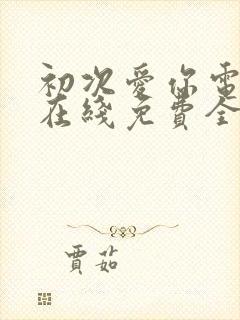 初次愛你電
在綫免費全
賈茹